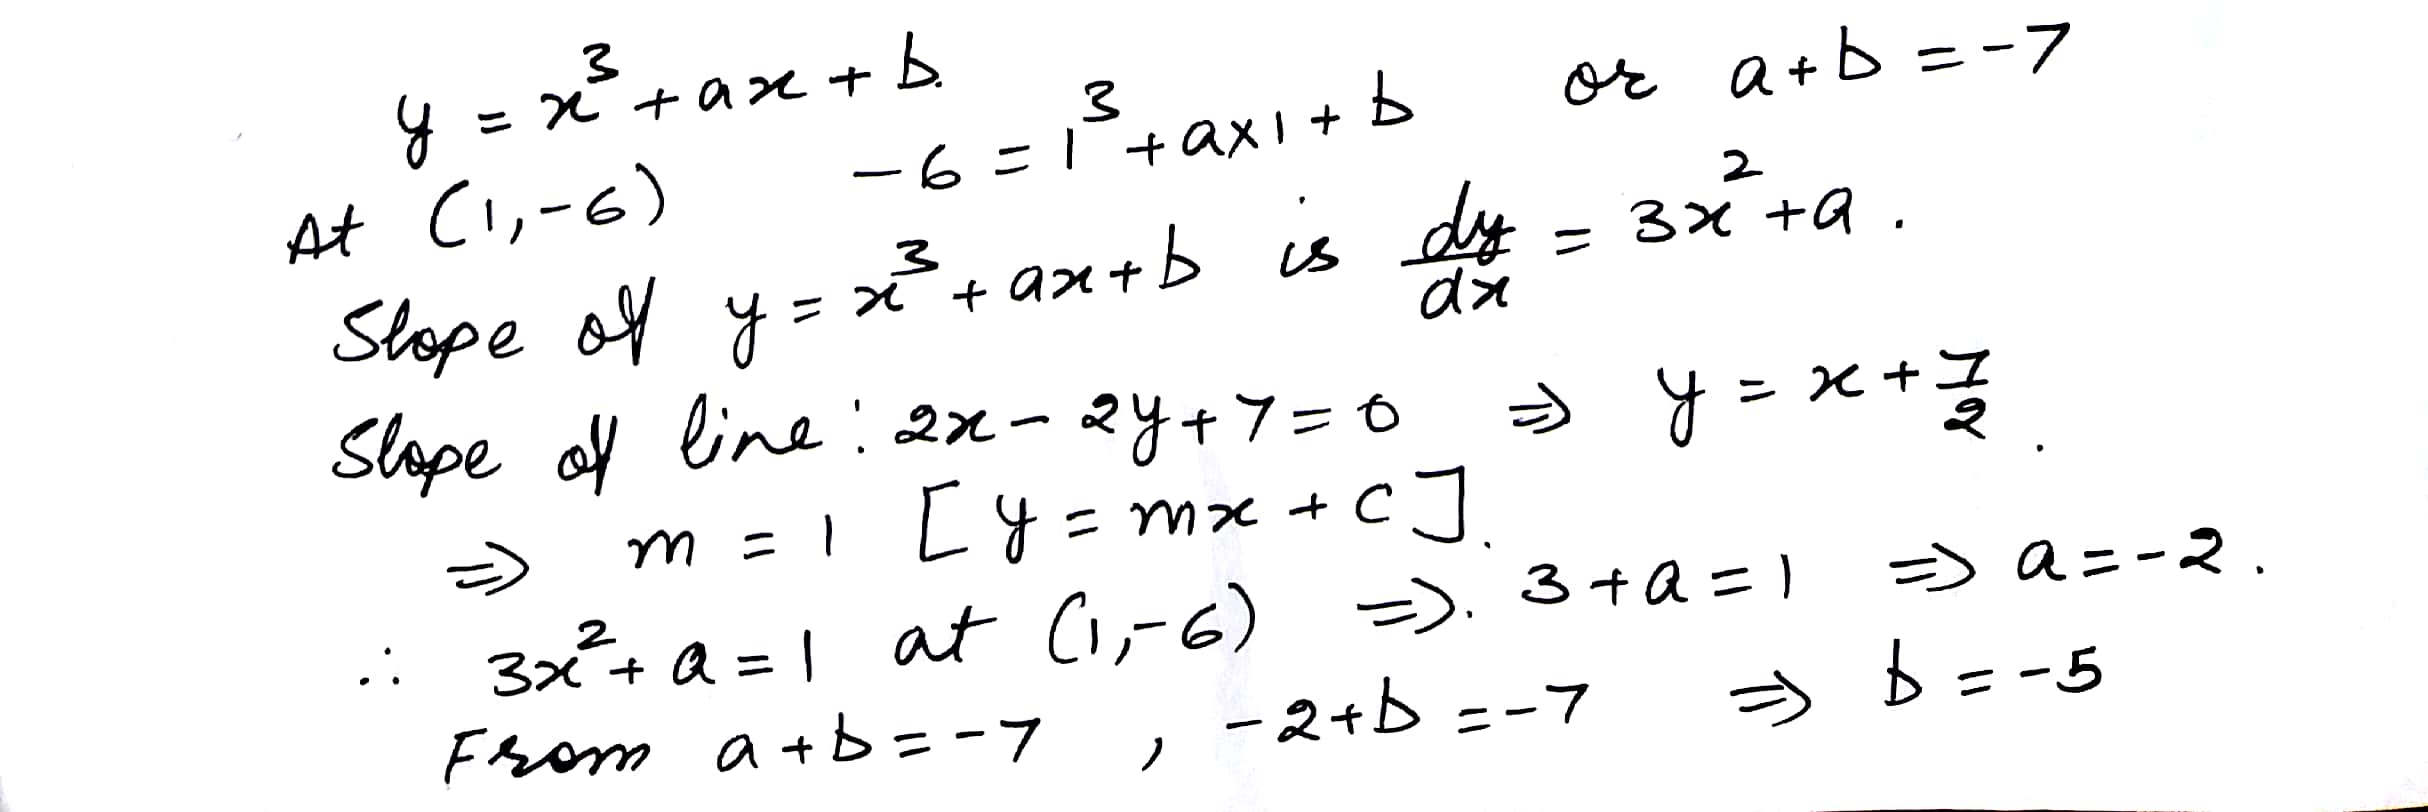 y = x³ + ax + b.
At (1,-6) -6 = 1³ + a×1 + b or a+b = -7
Slope of y = x³ + ax + b is dy/dx = 3x² + a.
Slope of line: 2x - 2y + 7 = 0 ⇒ y = x + 7/2.
⇒ m = 1 [y = mx + c].
∴ 3x² + a = 1 at (1,-6) ⇒. 3 + a = 1 ⇒ a = -2.
From a+b = -7, -2+b = -7 ⇒ b = -5